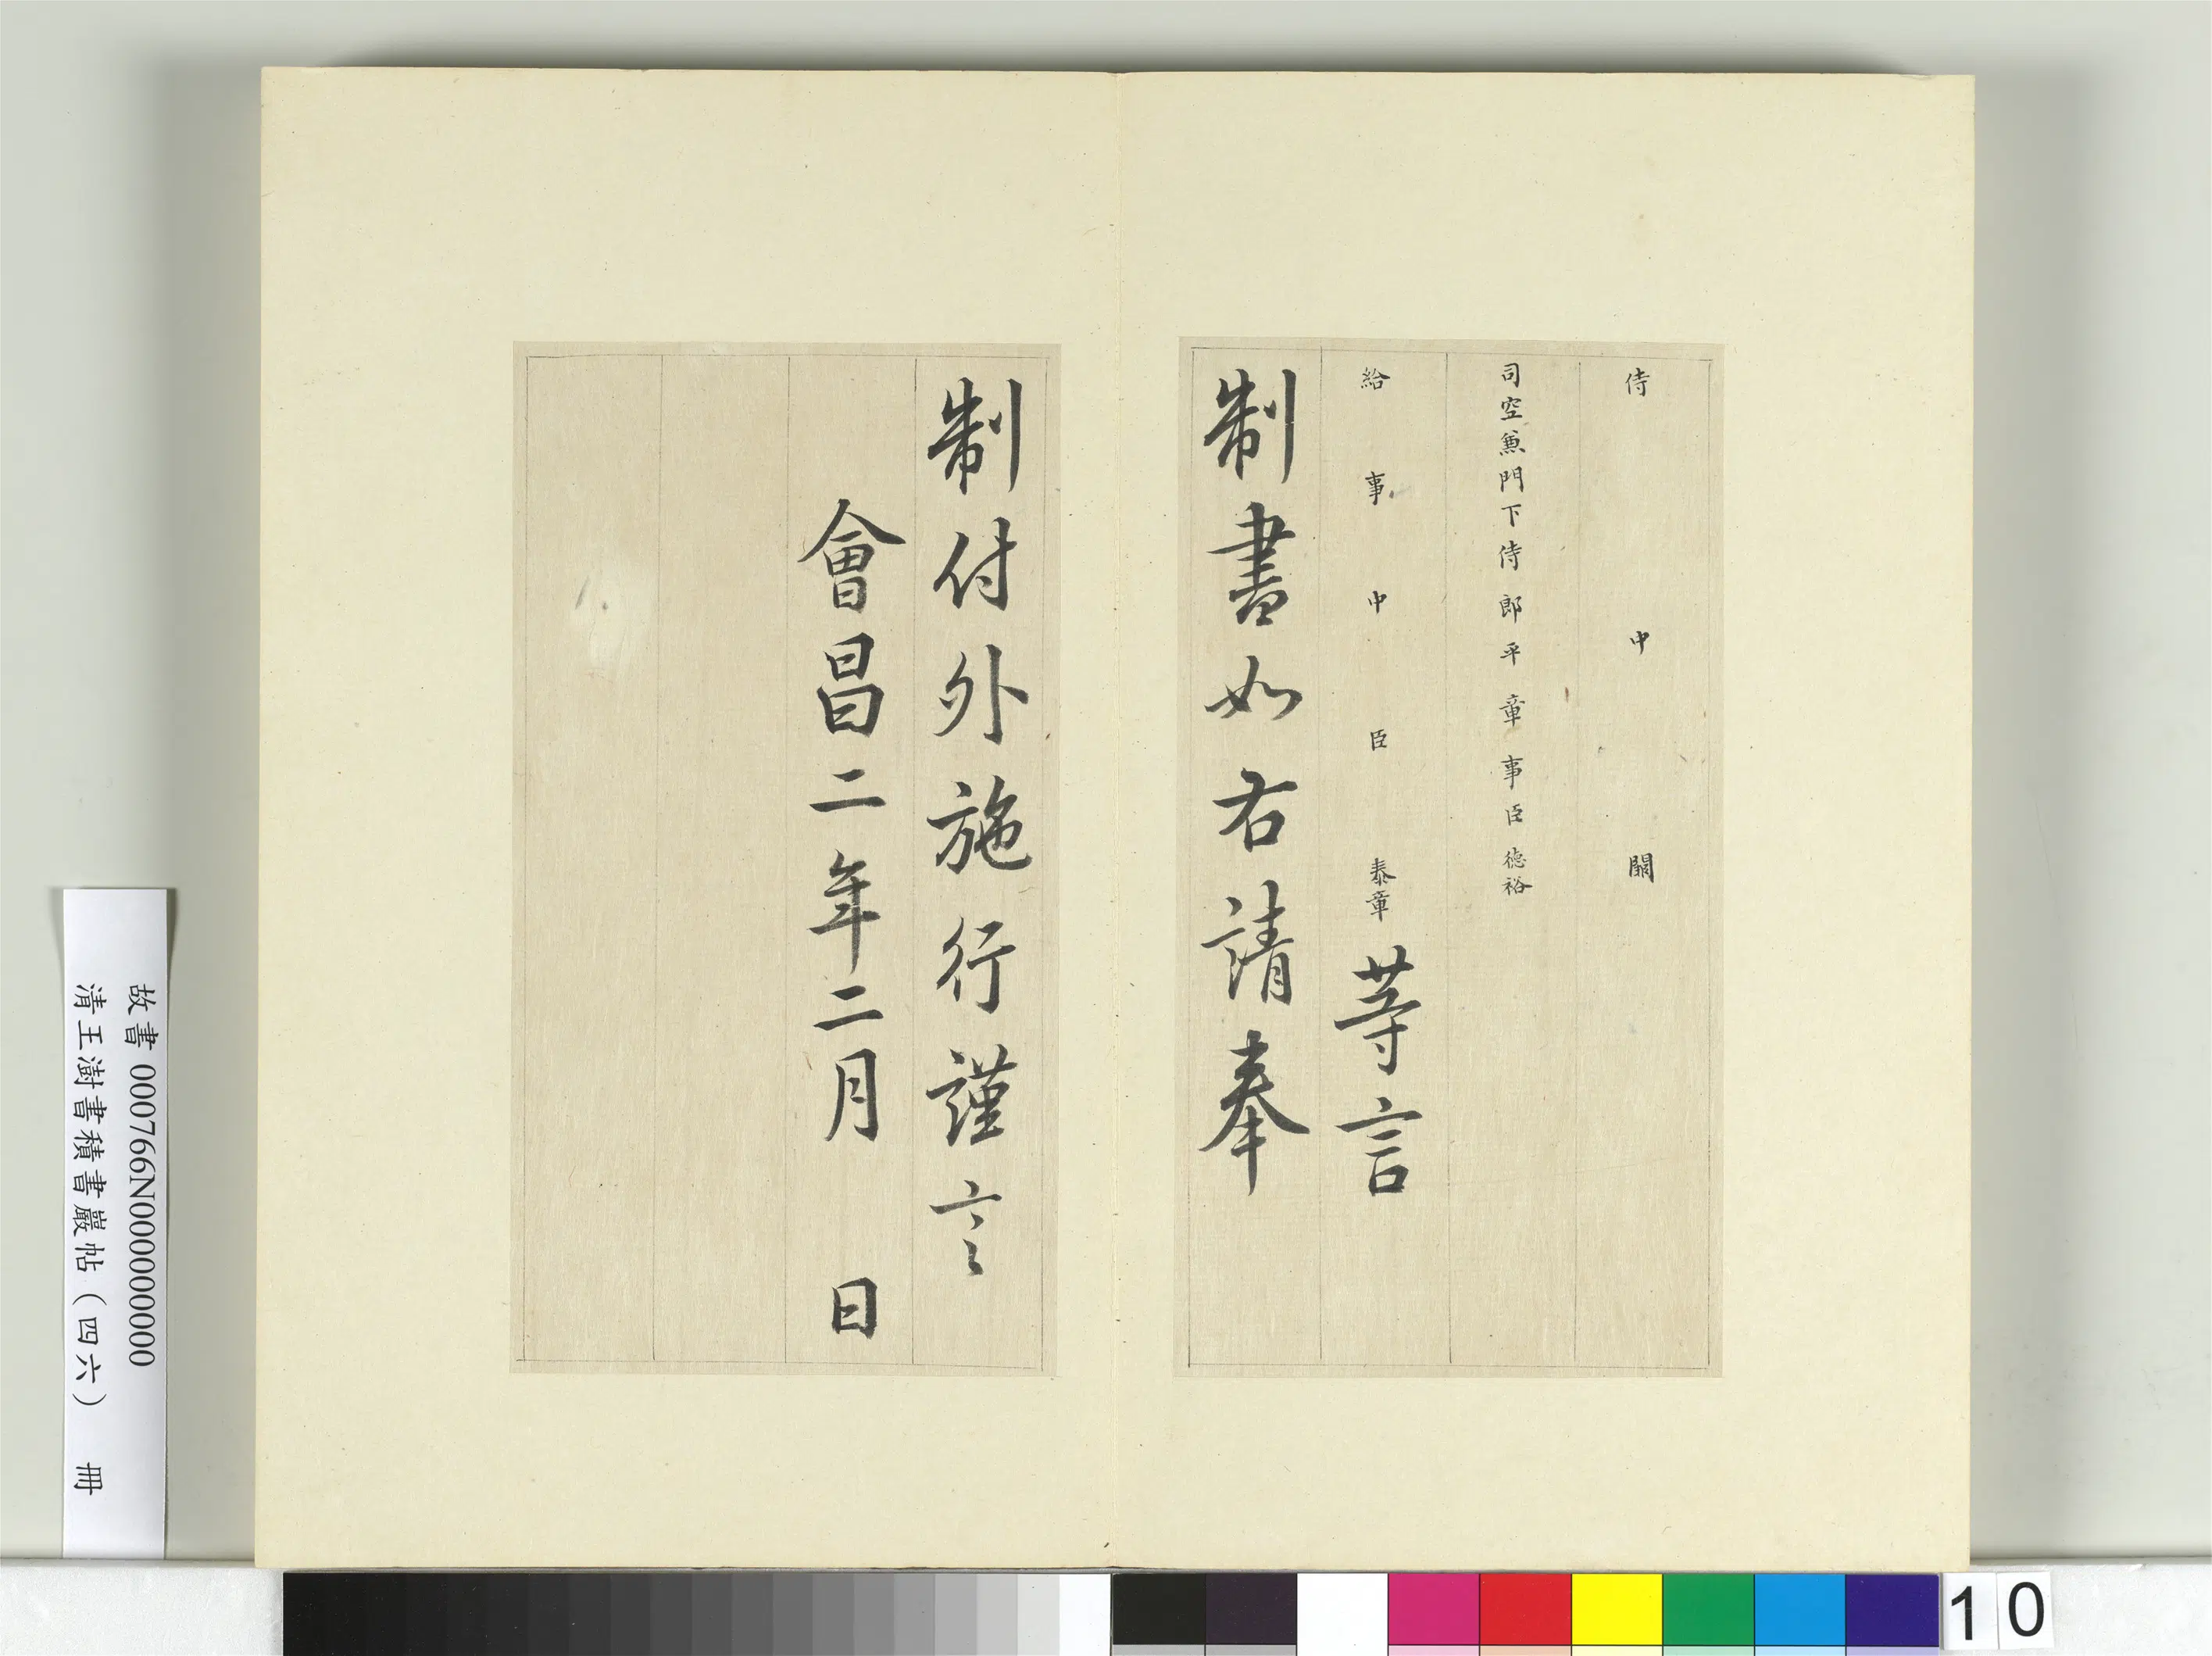 侍中闕
司空兼門下侍郎平章事臣德裕
給事中臣泰章等言
制書如右請奉
制付外施行謹言
會昌二年二月 日
故書 000766N000000000
清王澍書積書巖帖(四六) 冊
10